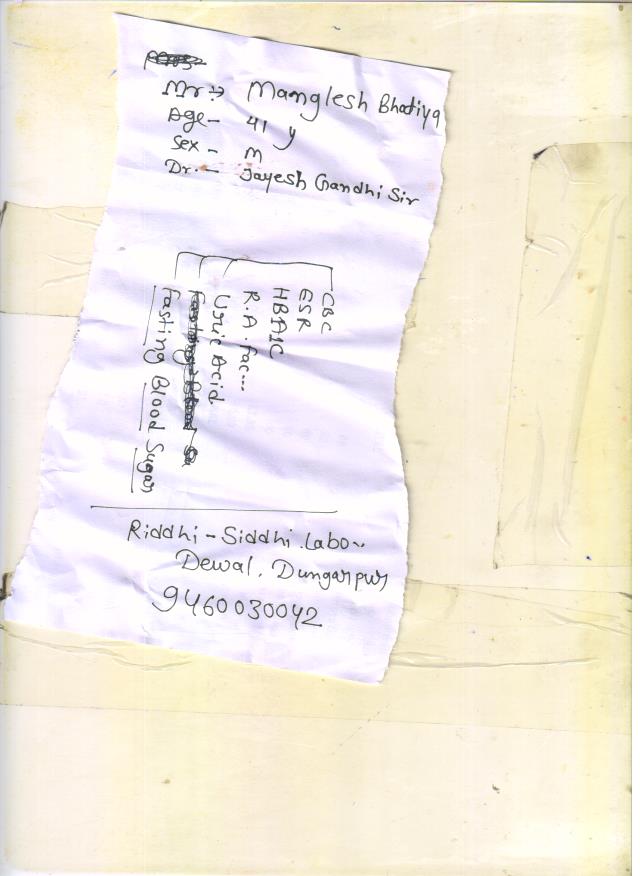 Mr :→ Manglesh Bhatiya
Age - 41 y
Sex - m
Dr. - Jayesh Gandhi Sir
CBC
ESR
HBA1C
R.A. fac...
Uric Acid
Fasting Blood Sugar
Riddhi - Siddhi Labo..
Dewal, Dungarpur
9460030042